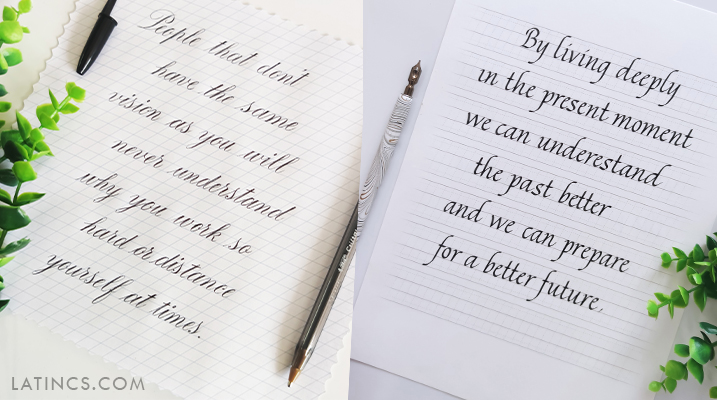 People that don't
have the same
vision as you will
never understand
why you work so
hard or distance
yourself at times.
By living deeply
in the present moment
we can underestand
the past better
and we can prepare
for a better future.
LATINCS.COM